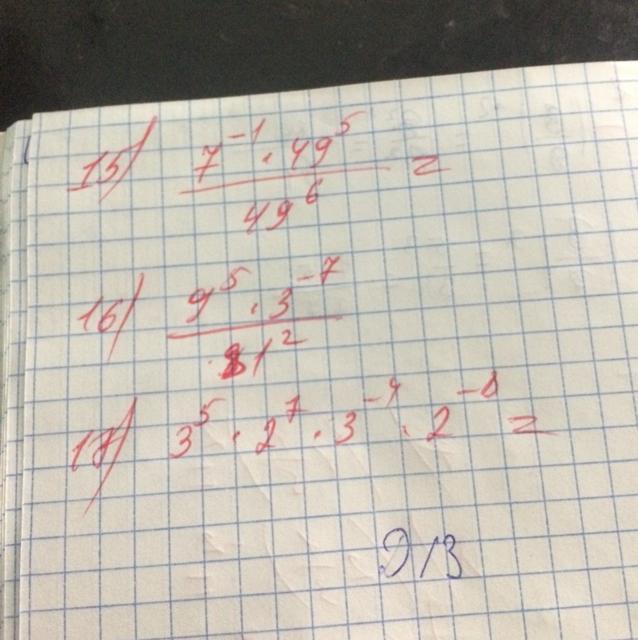 15) 7⁻¹ · 49⁵ / 49⁶ =
16) 9⁵ · 3⁻⁷ / 81²
17) 3⁵ · 2⁷ · 3⁻⁴ · 2⁻⁸ =
Д/З